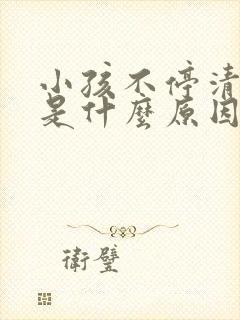 小孩不停清
是什麼原因
衛璧